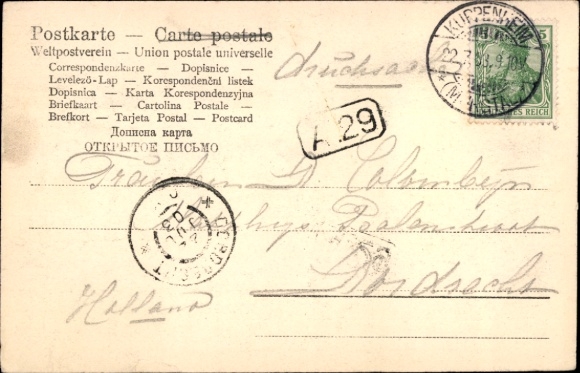 Postkarte — Carte postale
Weltpostverein – Union postale universelle
Correspondenzkarte – Dopisnice –
Levelező-Lap – Korespondenční listek
Dopisnica – Karta Korespondenzyjna
Briefkaart – Cartolina Postale –
Brefkort – Tarjeta Postal – Postcard
Дописна карта
ОТКРЫТОЕ ПИСЬМО
Drucksache
KUPPENHEIM
5
REICH
A 29
Fräulein
DORDRECHT
Dordrecht
Holland